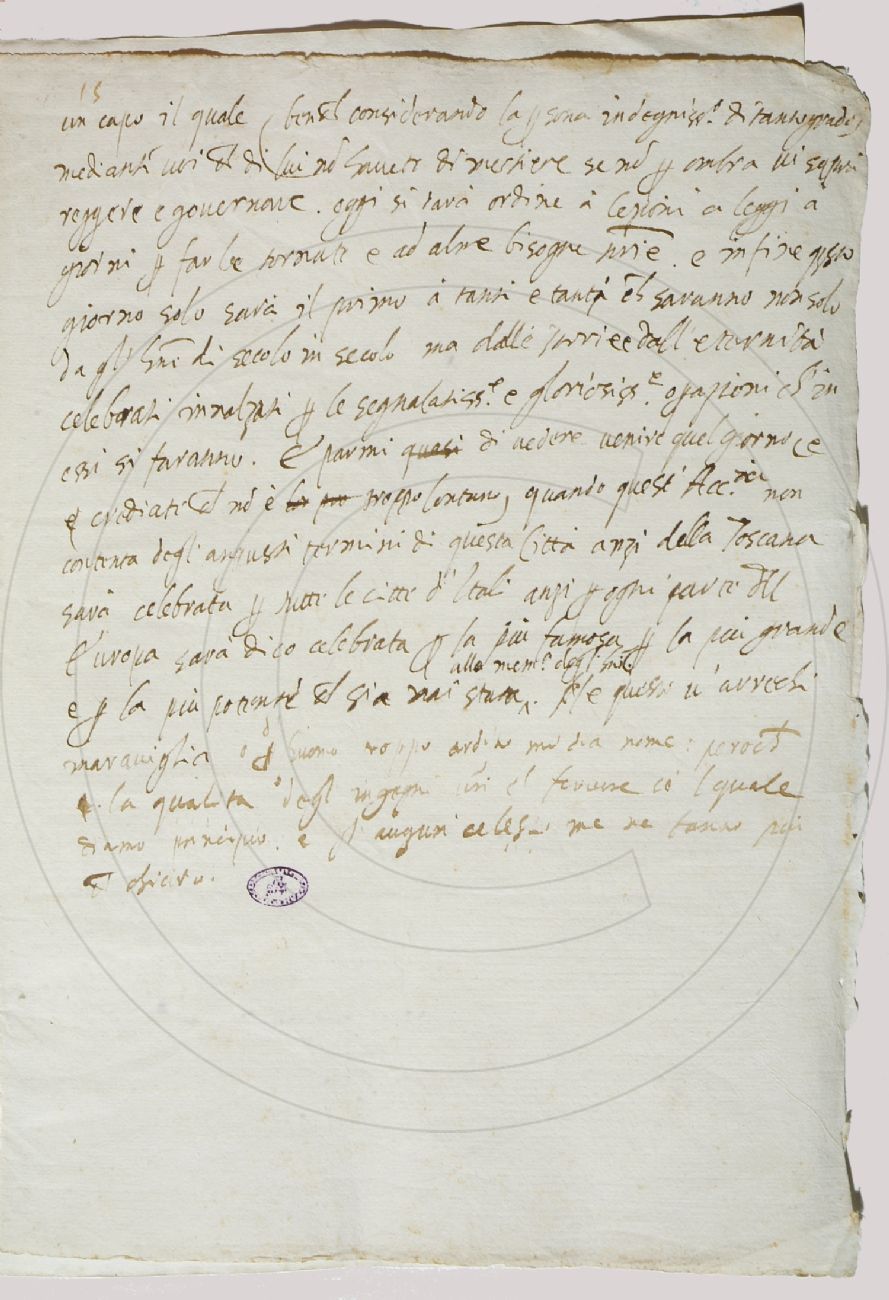 15
un capo il quale (bench considerando la psona indegniss.a di tanto grado,
di lui nō havete di mestiere se nō p ombra vi sapri
reggere e governare. oggi si darà ordine à lezioni a leggi à
giorni p far le tornate e ad altre bisogne e in fine qsto
giorno solo sarà il primo à tanti e tanti ch saranno non solo
da gl' di secolo in secolo ma dalle e dall' eternità
celebrati innalzati p le segnalatiss.e e gloriosiss.e opazioni ch' in
essi si faranno. E' parmi quasi di vedere venire quel giorno, e
crediate ch nō è troppo lontano, quando quest' Acc.ia non
contenta degl' angusti termini di questa Città anzi della Toscana
sarà celebrata p tutte le citte d' Itali anzi p ogni parte dll
Europa sarà dico celebrata p la più famosa p la più grande
alla mem.a degl'
e p la più potente ch sia mai stata. Ne questo v' arrechi
maraviglia o huomo troppo ardito mi dia nome: peroch
la qualità degl' ingegni vri e' l fervore cō l quale
diamo principio. e gl' auguri celesti me ne fanno più
ch chiaro.